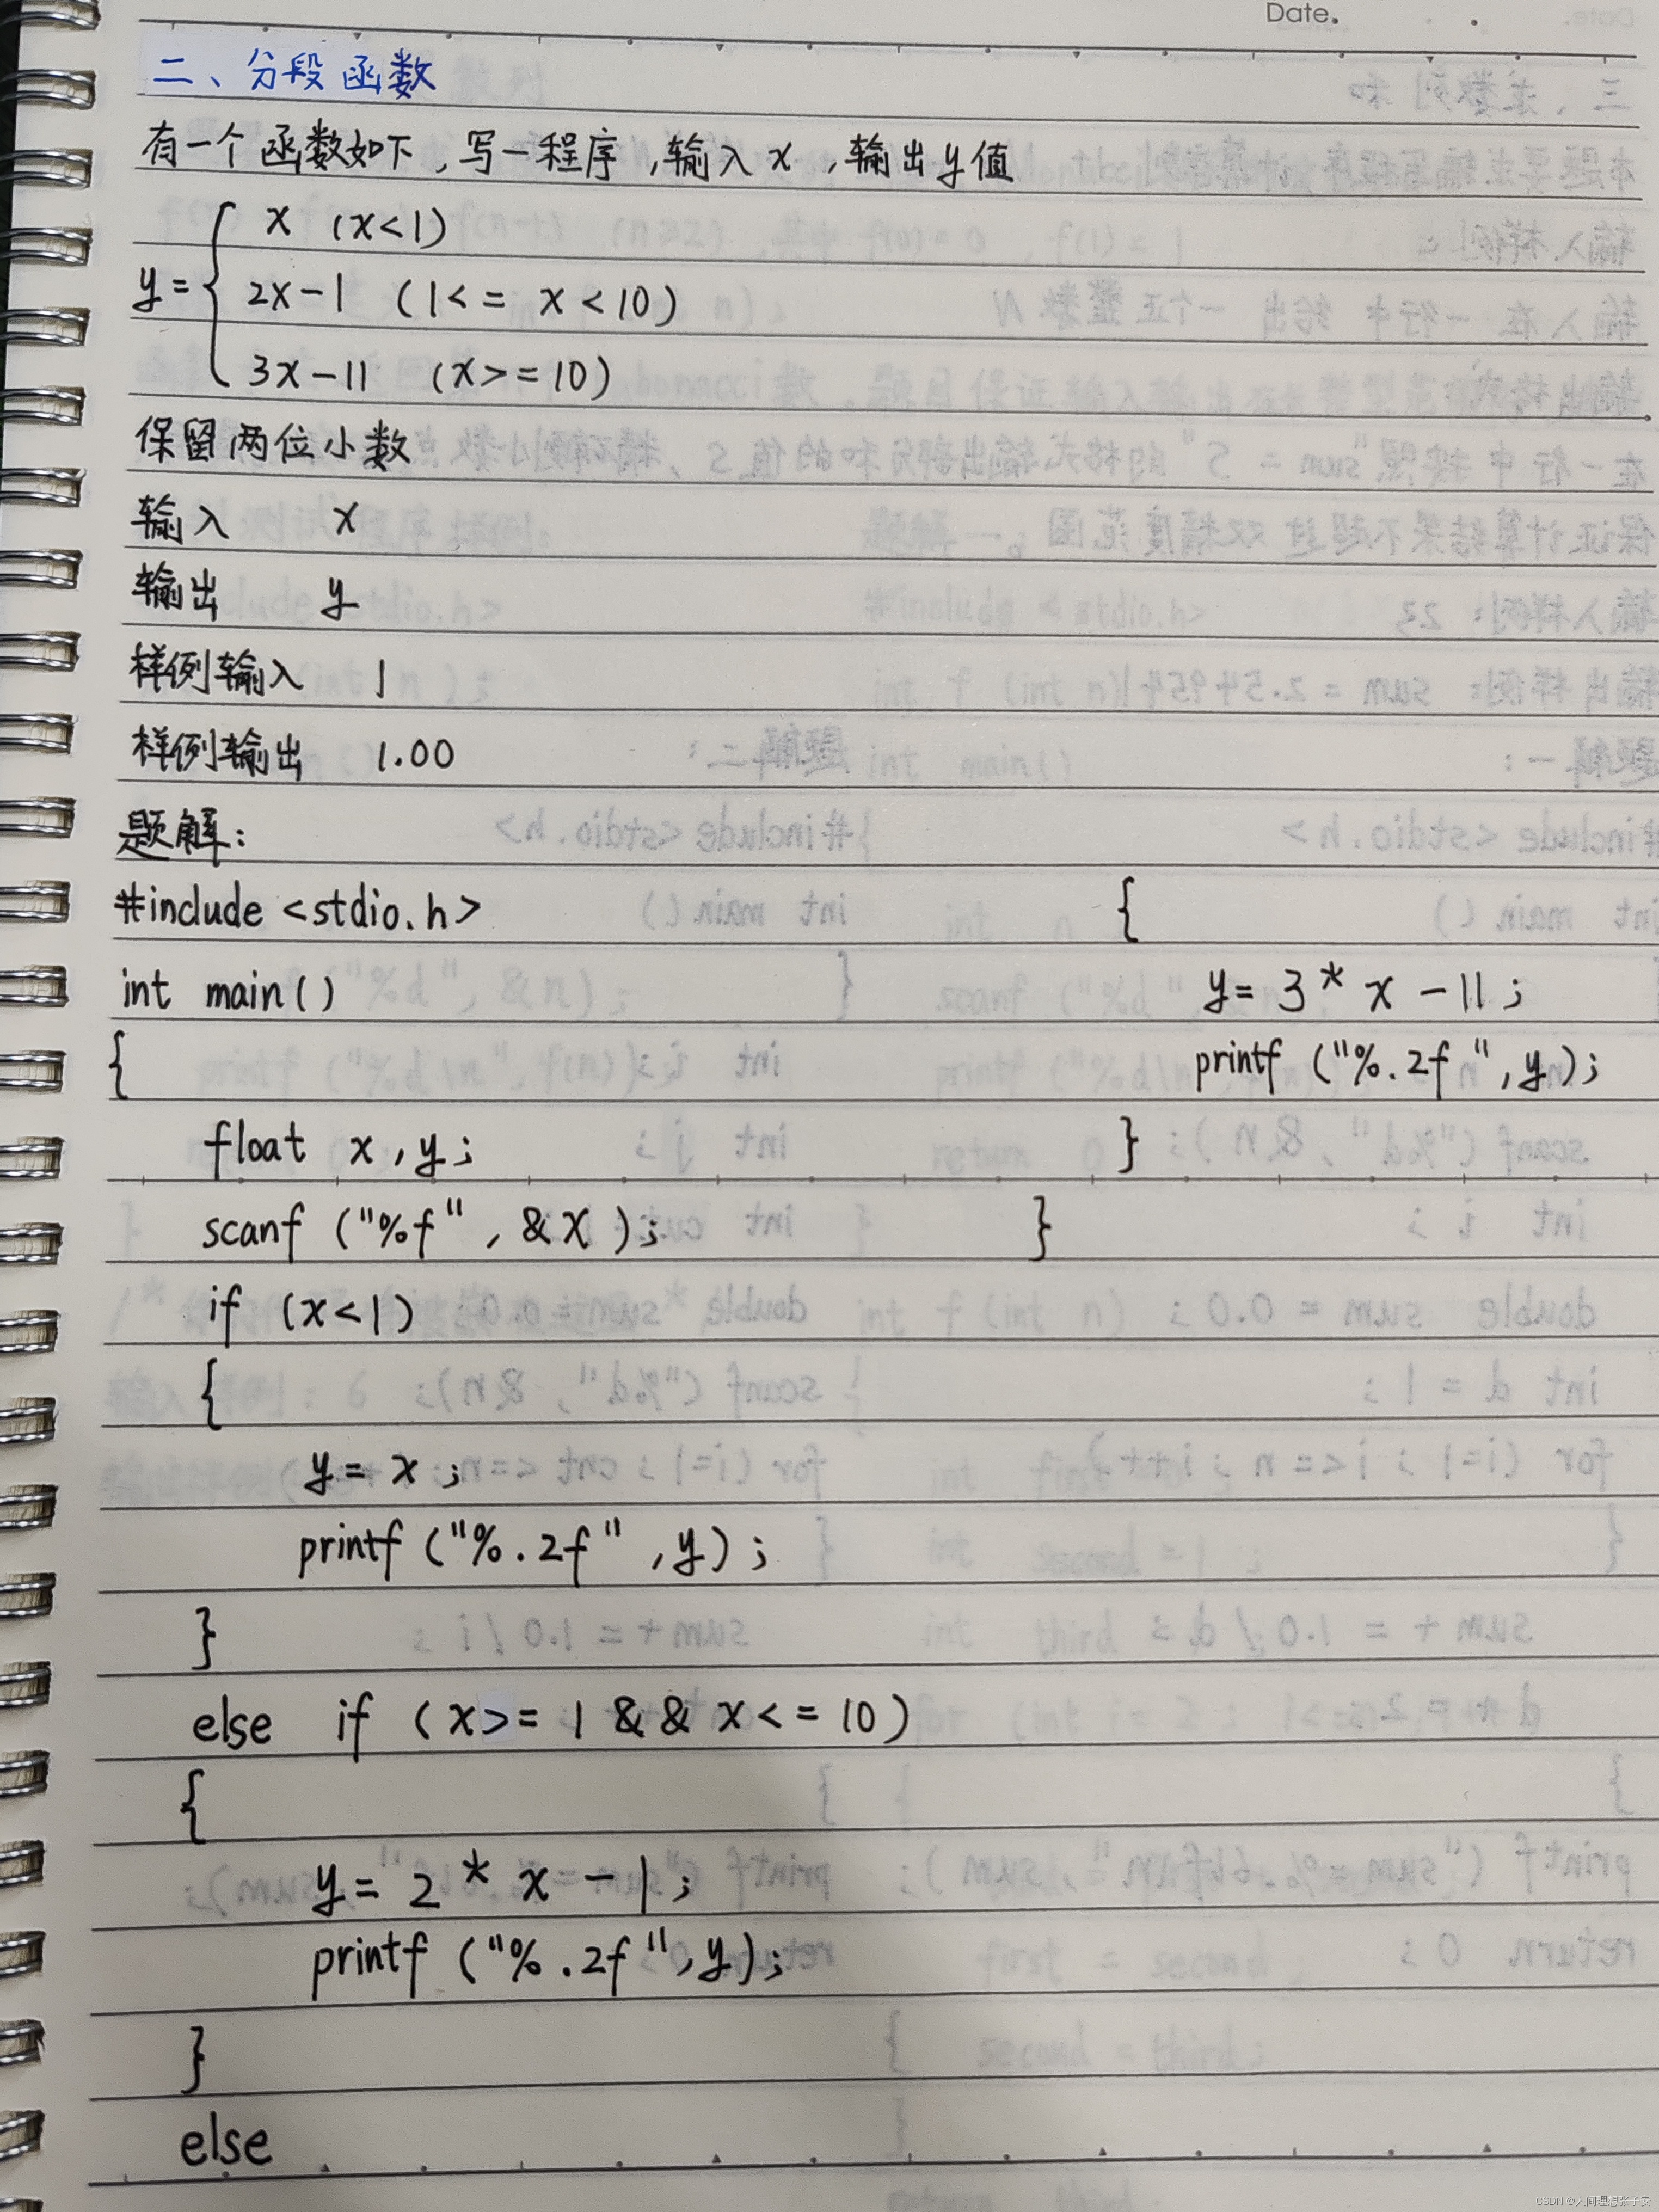 Date.
二、分段函数
有一个函数如下,写一程序,输入x,输出y值
y={ x (x<1)
2x-1 (1<= x <10)
3x-11 (x>=10)
保留两位小数
输入 x
输出 y
样例输入 1
样例输出 1.00
题解:
#include <stdio.h>
int main()
{
float x,y;
scanf ("%f", &x);
if (x<1)
{
y= x;
printf ("%.2f",y);
}
else if (x>= 1 && x<= 10)
{
y= 2 * x -1;
printf ("%.2f",y);
}
else
{
y= 3 * x -11;
printf ("%.2f",y);
}
}
CSDN @人间理想张子安